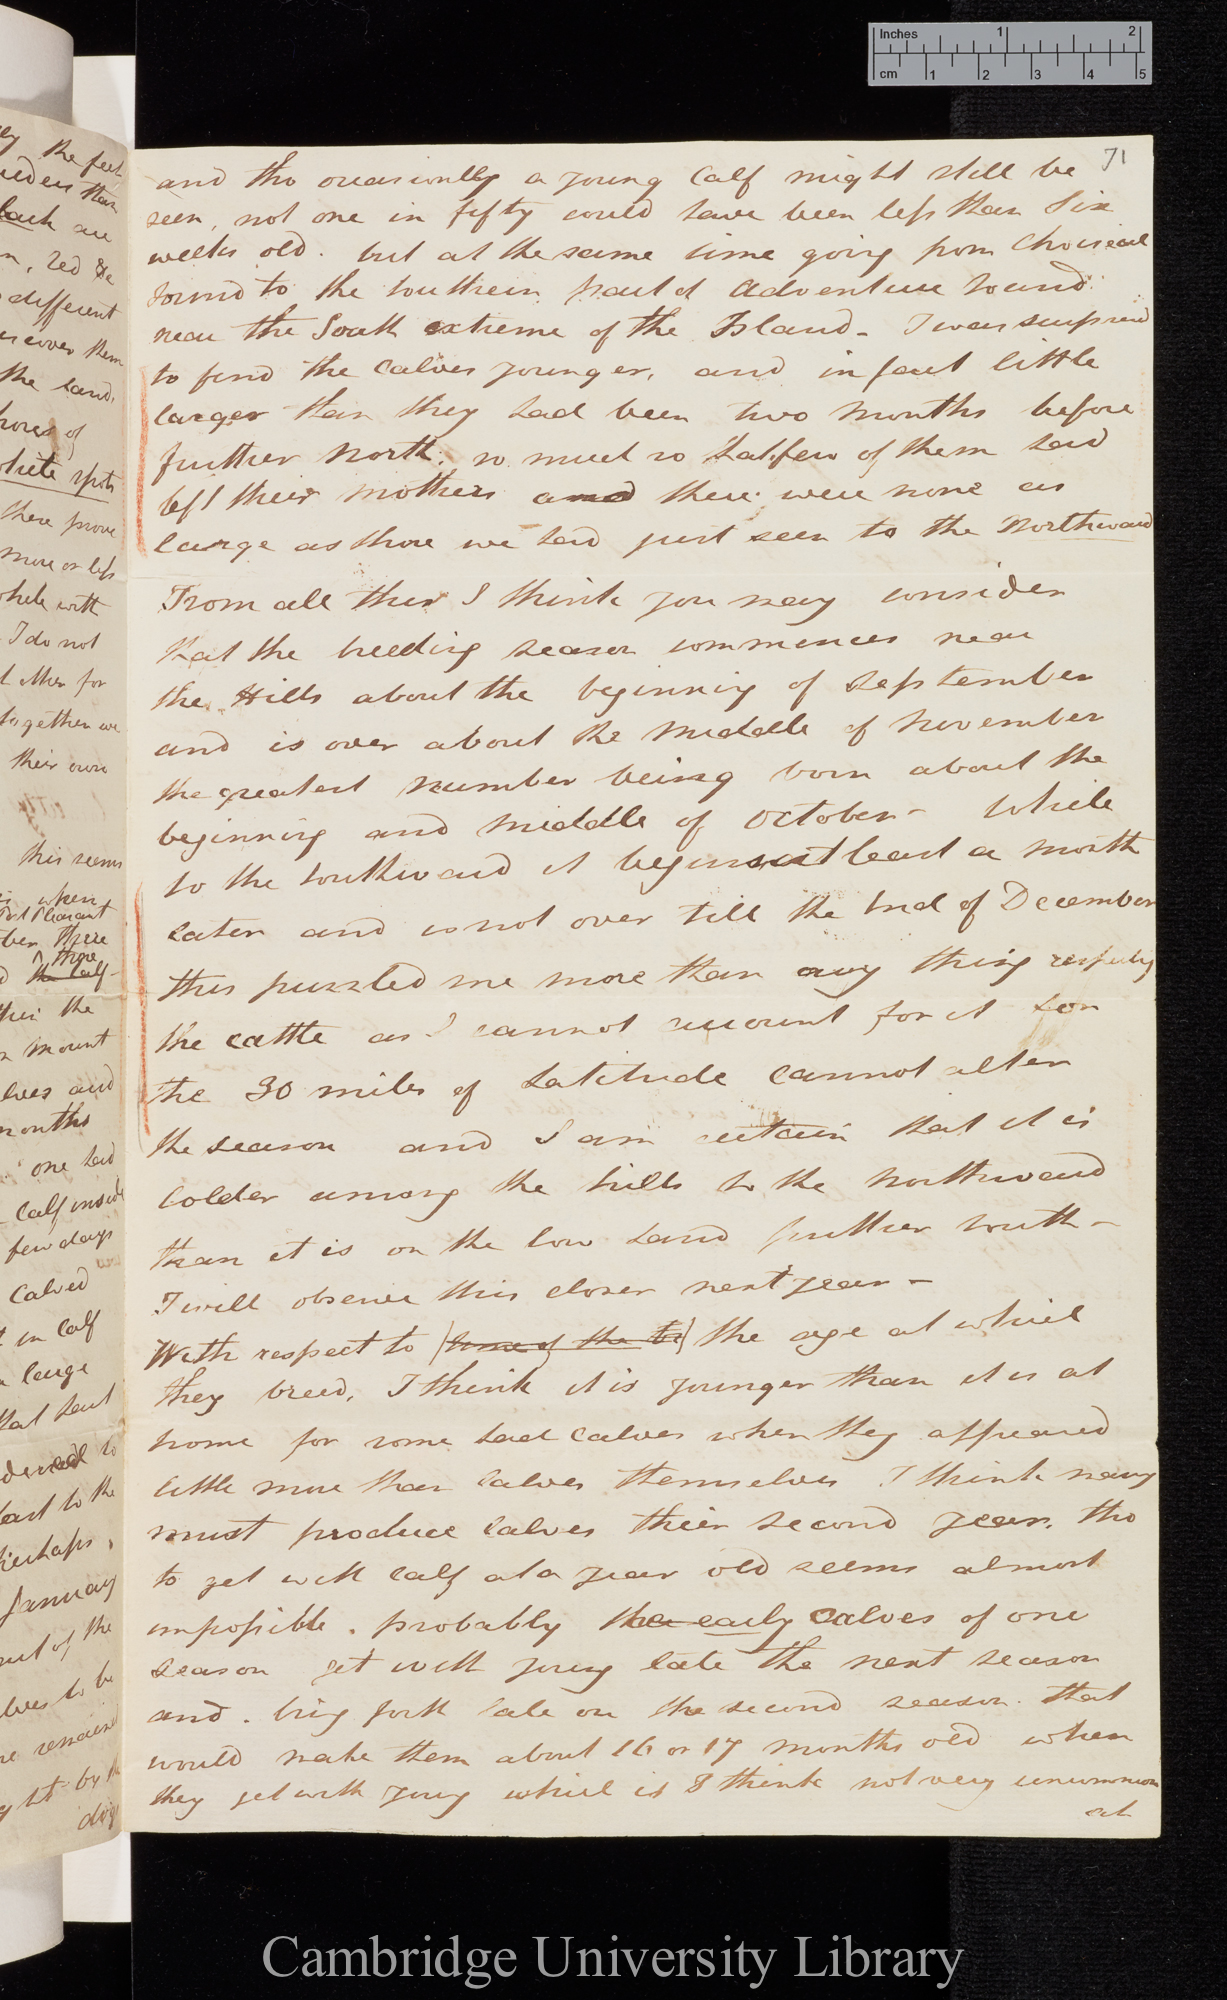 71
and tho occasionally a young Calf might still be
seen, not one in fifty could have been less than Six
weeks old. but at the same time going from Choiseul
sound to the Southern part of Adventure Sound
near the South extreme of the Island - I was surprised
to find the Calves younger, and in fact little
larger than they had been two months before
further North; so much so that few of them had
left their mothers and there were none as
large as those we had just seen to the Northward
From all this I think you may consider
that the breeding season commences near
the Hills about the beginning of September
and is over about the middle of November
the greatest number being born about the
beginning and middle of October - While
to the Southward it begins at least a month
later and is not over till the End of December
this puzzled me more than any thing respecting
the cattle as I cannot account for it for
the 30 miles of Latitude cannot alter
the season and I am certain that it is
Colder among the hills to the Northward
than it is on the low Land further South -
I will observe this closer next year -
With respect to (some of the tr) the age at which
they breed, I think it is younger than it is at
home for some had Calves when they appeared
little more than Calves themselves I think many
must produce Calves their second year, tho
to get with Calf at a year old seems almost
impossible. probably the early Calves of one
season get with young late the next season
and. bring forth late on the second season. that
would make them about 16 or 17 months old when
they get with young which is I think not very uncommon
at
the feet
than
back are
n, red &c
different
discover them
the land,
hores of
white spots
these prove
more or less
while with
I do not
other for
together we
their own
this seems
when
Port Pleasant
there
those
the calf
the
mount
and
months
one had
calf inside
few days
Calved
in Calf
large
that
to
east to the
perhaps,
January
of the
to be
remained
by the
dogs
Inches 1 2
cm 1 2 3 4 5
Cambridge University Library